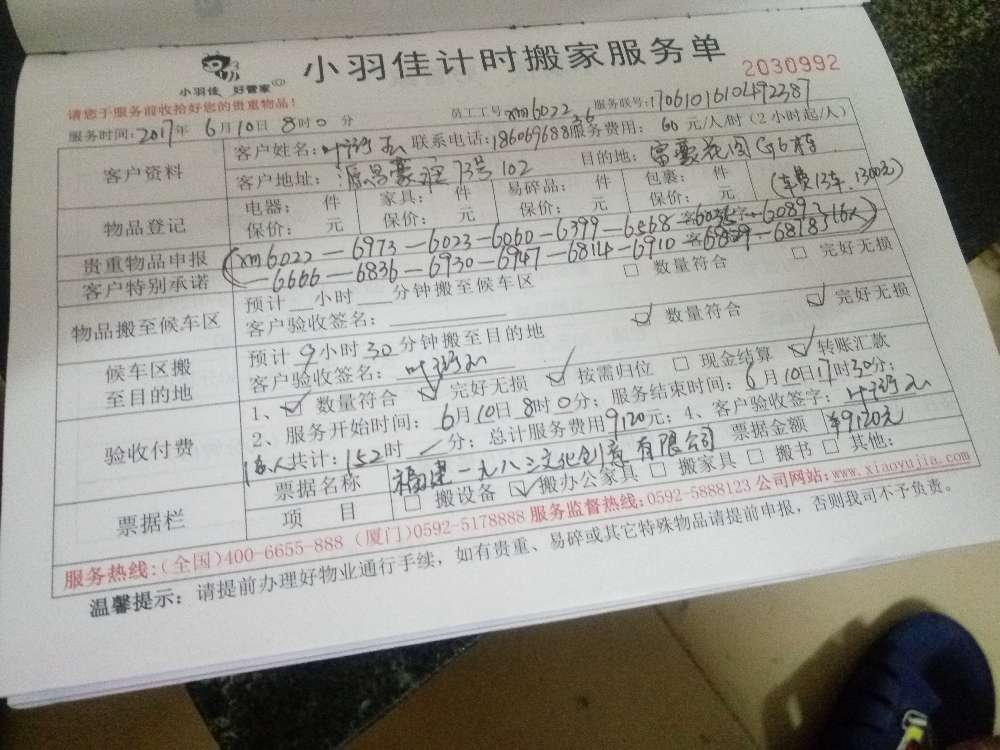 小羽佳计时搬家服务单
小羽佳 好管家
2030992
请您于服务前收拾好您的贵重物品!
员工工号xm6022 服务联号:1706101610492387
服务时间:2017年6月10日8时0分
客户资料
客户姓名: 联系电话: 服务费用: 60 元/人/时(2小时起/人)
客户地址: 73号102 目的地: 富豪花园
(车费13车,1300元)
物品登记
电器: 件 家具: 件 易碎品: 件 包裹: 件
保价: 元 保价: 元 保价: 元 保价: 元
贵重物品申报
(xm6022-6973-6023-6060-6399-6568-
客户特别承诺
-6666-6836-6930-6947-6814-6910-
物品搬至候车区
预计 小时 分钟搬至候车区 数量符合 完好无损
客户验收签名:
候车区搬至目的地
预计9小时30分钟搬至目的地 数量符合 完好无损
客户验收签名:
验收付费
1、数量符合 完好无损 按需归位 现金结算 转账汇款
2、服务开始时间:6月10日8时0分;服务结束时间:6月10日17时30分;
16人共计:152时/分;总计服务费用9120元;4、客户验收签字:
票据栏
票据名称 福建一九八二文化创意有限公司 票据金额 ¥9120元
项目 搬设备 搬办公家具 搬家具 搬书 其他:
服务热线:(全国)400-6655-888 (厦门)0592-5178888 服务监督热线:0592-5888123 公司网站:www.xiaoyujia.com
温馨提示:请提前办理好物业通行手续,如有贵重、易碎或其它特殊物品请提前申报,否则我司不予负责。